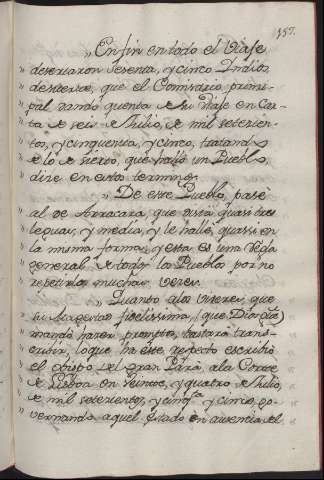 157.
„ En fin en todo el Viaje
„ desertaron sesenta, y cinco Indios
„ de suerte, que el Comisario princi-
„ pal dando quenta de su Viaje en Car-
„ ta de seis de Julio, de mil setecien-
„ tos, y cinquenta, y cinco, tratando
„ de lo de siervo, que halló un Pueblo,
„ dice en estos terminos.
„ De este Pueblo, pasè
„ al de Arracara, que dista quasi tres
„ leguas, y media, y le hallè, quasi en
„ la misma forma, y esta es una regla
„ general de todos los Pueblos por no
„ repetirlo muchas veces.
„ Quando a los viveres, que
„ su Magestad fidelissima, (que Dios gde)
„ mandò hacer prompto, bastarà trans-
„ cribir, lo que ha este respecto escribiò
„ el obispo del Gran Parà a la Corte
„ de Lisboa en veinte, y quatro de Julio,
„ de mil setecientos, y cinqta y cinco go-
„ vernando aquel estado en ausencia del